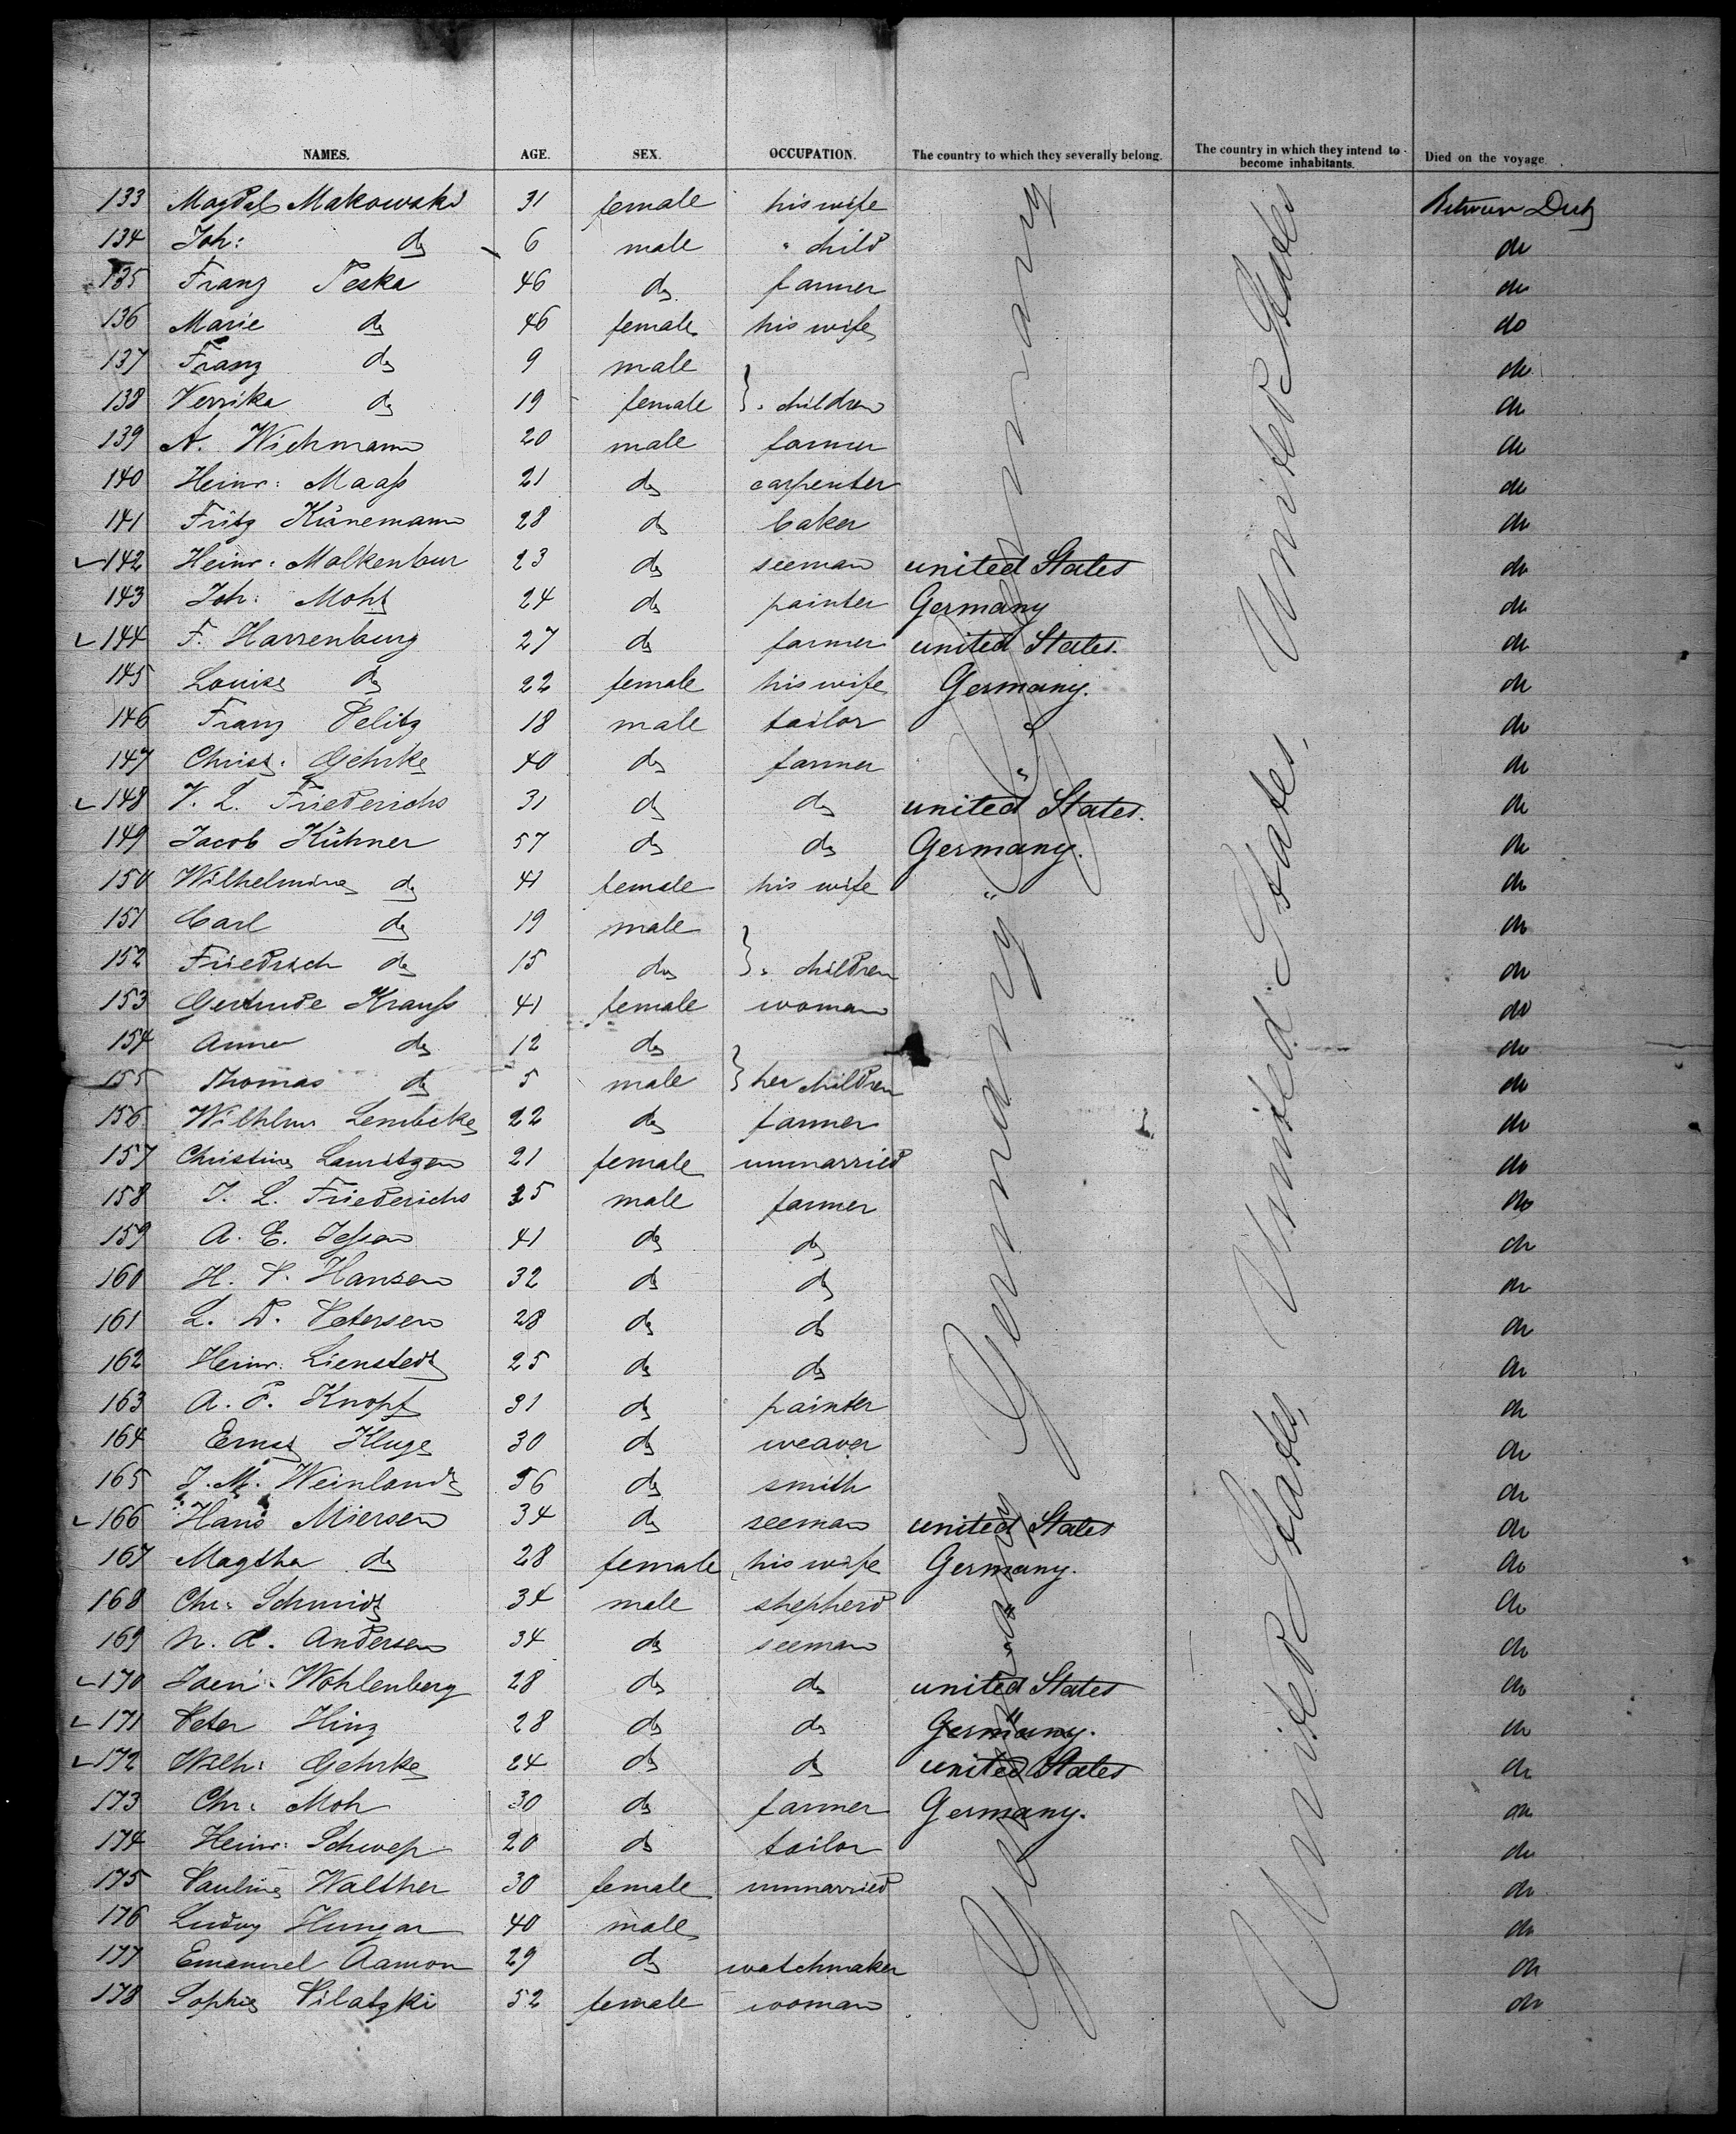 NAMES. AGE. SEX. OCCUPATION. The country to which they severally belong. The country in which they intend to become inhabitants. Died on the voyage.
133 Magdal Makowski 31 female his wife Between Deck
134 Joh: do 6 male " child do
135 Franz Peska 46 do farmer do
136 Marie do 46 female his wife do
137 Franz do 9 male do
138 Verrika do 19 female } " children do
139 A. Wichmann 20 male farmer do
140 Heinr: Maaß 21 do carpenter do
141 Fritz Künemann 28 do baker do
142 Heinr: Molkenbur 23 do seeman united States do
143 Joh: Moht 24 do painter Germany do
144 F. Harsenburg 27 do farmer united States. do
145 Louise do 22 female his wife Germany. do
146 Franz Pelitz 18 male tailor " do
147 Christ: Gehrke 40 do farmer " do
148 V. L. Friederichs 31 do do united States. do
149 Jacob Kühner 57 do do Germany. do
150 Wilhelmine do 41 female his wife " do
151 Carl do 19 male do
152 Friedrich do 15 do } " children do
153 Gertrude Krauß 41 female woman do
154 Anna do 12 do do
155 Thomas do 5 male } her children do
156 Wilhelm Lembcke 22 do farmer do
157 Christine Lauritzen 21 female unmarried do
158 J. L. Friederichs 35 male farmer do
159 A. E. Jeßen 41 do do do
160 H. P. Hansen 32 do do do
161 L. D. Petersen 28 do do do
162 Heinr: Lienstedt 25 do do do
163 A. F. Knopf 31 do painter do
164 Ernst Kluge 30 do weaver do
165 J. M. Weinlandt 56 do smith do
166 Hans Miersen 34 do seeman united States do
167 Magtha do 28 female his wife Germany. do
168 Chr: Schmidt 34 male shepherd " do
169 N. A. Andersen 34 do seeman " do
170 Wohlenberg 28 do do united States do
171 Peter Hinz 28 do do Germany. do
172 Wilh: Gehrke 24 do do united States do
173 Chr: Moh 30 do farmer Germany. do
174 Heinr: Schweß 20 do tailor do
175 Pauline Walther 30 female unmarried do
176 Ludwig Hungar 40 male do
177 Emanuel Aamon 29 do watchmaker do
178 Sophie Pilatzki 52 female woman do
Germany
Germany
Germany
United States
United States,
United States,